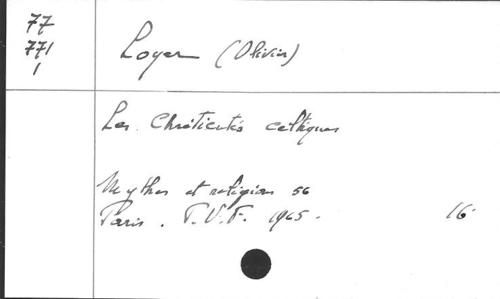 77
771
1
Loyer (Olivier)
Les Chrétientés celtiques
Mythes et religions 56
Paris. P.U.F. 1965.
16